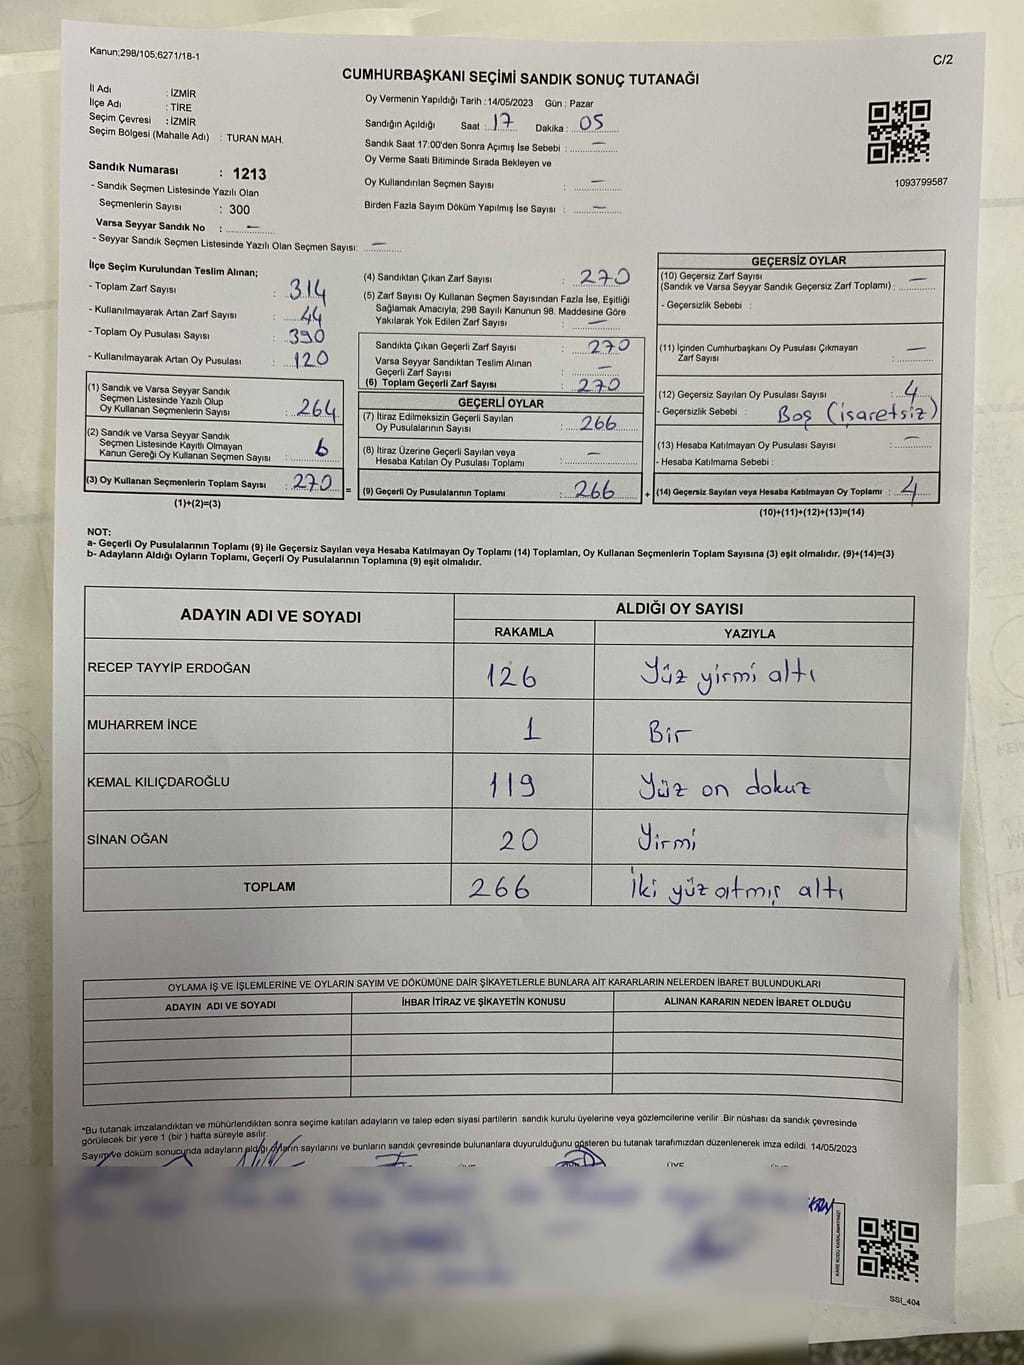 Kanun;298/105;6271/18-1
C/2
CUMHURBAŞKANI SEÇİMİ SANDIK SONUÇ TUTANAĞI
İl Adı : İZMİR
İlçe Adı : TİRE
Seçim Çevresi : İZMİR
Seçim Bölgesi (Mahalle Adı) : TURAN MAH.
Sandık Numarası : 1213
- Sandık Seçmen Listesinde Yazılı Olan
Seçmenlerin Sayısı : 300
Varsa Seyyar Sandık No : —
- Seyyar Sandık Seçmen Listesinde Yazılı Olan Seçmen Sayısı: —
Oy Vermenin Yapıldığı Tarih : 14/05/2023 Gün : Pazar
Sandığın Açıldığı Saat : 17 Dakika : 05
Sandık Saat 17:00'den Sonra Açımış İse Sebebi : —
Oy Verme Saati Bitiminde Sırada Bekleyen ve
Oy Kullandırılan Seçmen Sayısı : —
Birden Fazla Sayım Döküm Yapılmış İse Sayısı : —
1093799587
İlçe Seçim Kurulundan Teslim Alınan;
- Toplam Zarf Sayısı : 314
- Kullanılmayarak Artan Zarf Sayısı : 44
- Toplam Oy Pusulası Sayısı : 390
- Kullanılmayarak Artan Oy Pusulası : 120
(1) Sandık ve Varsa Seyyar Sandık
Seçmen Listesinde Yazılı Olup
Oy Kullanan Seçmenlerin Sayısı : 264
(2) Sandık ve Varsa Seyyar Sandık
Seçmen Listesinde Kayıtlı Olmayan
Kanun Gereği Oy Kullanan Seçmen Sayısı : 6
(3) Oy Kullanan Seçmenlerin Toplam Sayısı : 270 =
(1)+(2)=(3)
(4) Sandıktan Çıkan Zarf Sayısı : 270
(5) Zarf Sayısı Oy Kullanan Seçmen Sayısından Fazla İse, Eşitliği
Sağlamak Amacıyla; 298 Sayılı Kanunun 98. Maddesine Göre
Yakılarak Yok Edilen Zarf Sayısı : —
Sandıkta Çıkan Geçerli Zarf Sayısı : 270
Varsa Seyyar Sandıktan Teslim Alınan
Geçerli Zarf Sayısı : —
(6) Toplam Geçerli Zarf Sayısı : 270
GEÇERLİ OYLAR
(7) İtiraz Edilmeksizin Geçerli Sayılan
Oy Pusulalarının Sayısı : 266
(8) İtiraz Üzerine Geçerli Sayılan veya
Hesaba Katılan Oy Pusulası Toplamı : —
(9) Geçerli Oy Pusulalarının Toplamı : 266 +
GEÇERSİZ OYLAR
(10) Geçersiz Zarf Sayısı
(Sandık ve Varsa Seyyar Sandık Geçersiz Zarf Toplamı) : —
- Geçersizlik Sebebi :
(11) İçinden Cumhurbaşkanı Oy Pusulası Çıkmayan
Zarf Sayısı : —
(12) Geçersiz Sayılan Oy Pusulası Sayısı : 4
- Geçersizlik Sebebi : Boş (işaretsiz)
(13) Hesaba Katılmayan Oy Pusulası Sayısı : —
- Hesaba Katılmama Sebebi :
(14) Geçersiz Sayılan veya Hesaba Katılmayan Oy Toplamı : 4
(10)+(11)+(12)+(13)=(14)
NOT:
a- Geçerli Oy Pusulalarının Toplamı (9) ile Geçersiz Sayılan veya Hesaba Katılmayan Oy Toplamı (14) Toplamları, Oy Kullanan Seçmenlerin Toplam Sayısına (3) eşit olmalıdır. (9)+(14)=(3)
b- Adayların Aldığı Oyların Toplamı, Geçerli Oy Pusulalarının Toplamına (9) eşit olmalıdır.
ADAYIN ADI VE SOYADI ALDIĞI OY SAYISI
RAKAMLA YAZIYLA
RECEP TAYYİP ERDOĞAN 126 Yüz yirmi altı
MUHARREM İNCE 1 Bir
KEMAL KILIÇDAROĞLU 119 Yüz on dokuz
SİNAN OĞAN 20 Yirmi
TOPLAM 266 İki yüz atmış altı
OYLAMA İŞ VE İŞLEMLERİNE VE OYLARIN SAYIM VE DÖKÜMÜNE DAİR ŞİKAYETLERLE BUNLARA AİT KARARLARIN NELERDEN İBARET BULUNDUKLARI
ADAYIN ADI VE SOYADI İHBAR İTİRAZ VE ŞİKAYETİN KONUSU ALINAN KARARIN NEDEN İBARET OLDUĞU
*Bu tutanak imzalandıktan ve mühürlendikten sonra seçime katılan adayların ve talep eden siyasi partilerin sandık kurulu üyelerine veya gözlemcilerine verilir .Bir nüshası da sandık çevresinde
görülecek bir yere 1 (bir ) hafta süreyle asılır.
Sayım ve döküm sonucunda adayların aldığı oyların sayılarını ve bunların sandık çevresinde bulunanlara duyurulduğunu gösteren bu tutanak tarafımızdan düzenlenerek imza edildi. 14/05/2023
KARE KODU KARALAMAYINIZ!
SSI_404